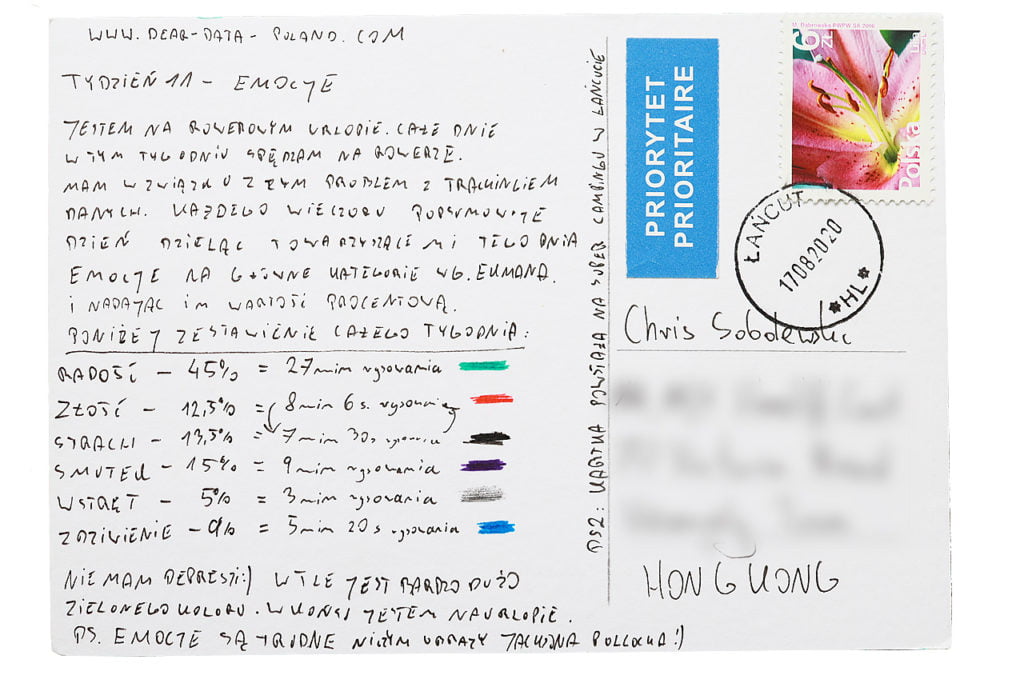 WWW.DEAR-DATA-POLAND.COM
TYDZIEŃ 11 - EMOCJE
JESTEM NA ROWEROWYM URLOPIE. CAŁE DNIE
W TYM TYGODNIU SPĘDZAM NA ROWERZE.
MAM W ZWIĄZKU Z TYM PROBLEM Z TRACKINGIEM
DANYCH. KAŻDEGO WIECZORU PODSUMOWUJĘ
DZIEŃ DZIELĄC TOWARZYSZĄCE MI TEGO DNIA
EMOCJE NA GŁÓWNE KATEGORIE WG. EKMANA.
I NADAJĄC IM WARTOŚĆ PROCENTOWĄ.
PONIŻEJ ZESTAWIENIE CAŁEGO TYGODNIA:
RADOŚĆ - 45% = 27 min rysowania
ZŁOŚĆ - 12,5% = 8 min 6 s. rysowania
STRACH - 13,5% = 7 min 30 s rysowania
SMUTEK - 15% = 9 min rysowania
WSTRĘT - 5% = 3 min rysowania
ZDZIWIENIE - 9% = 5 min 20 s rysowania
NIE MAM DEPRESJI:) W TLE JEST BARDZO DUŻO
ZIELONEGO KOLORU. W KOŃCU JESTEM NA URLOPIE.
PS. EMOCJE SĄ TRUDNE NICZYM OBRAZY JACKSONA POLLOCKA:)
PS2: KARTKA POWSTAŁA NA SUPER CAMPINGU W ŁAŃCUCIE
PRIORYTET
PRIORITAIRE
M. Dąbrowska PWPW SA 2016
6 ZŁ
Polska
ŁAŃCUT
17082020
*HL*
Chris Sobolewski
HONG KONG